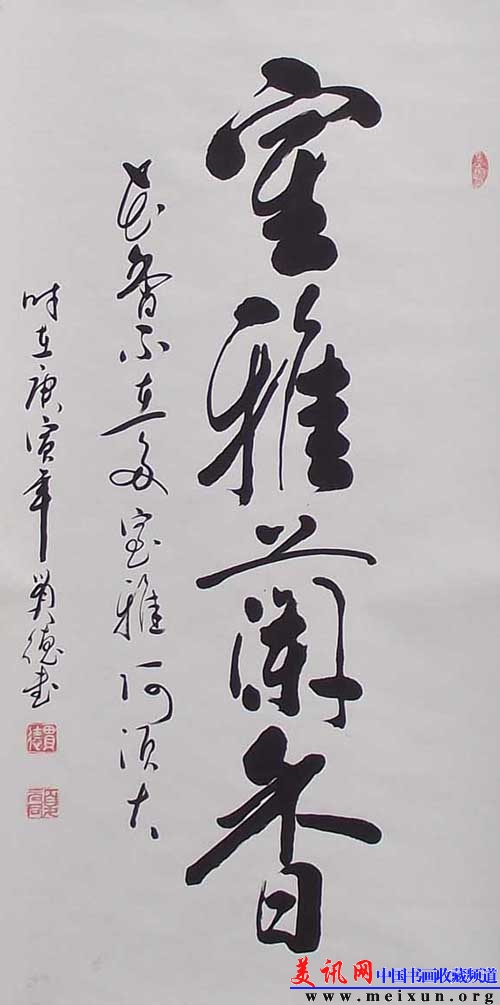 室雅蘭香
花香不在多室雅何須大
时在庚寅年 贯德书
美讯网 中国书画收藏频道
www.meixun.org